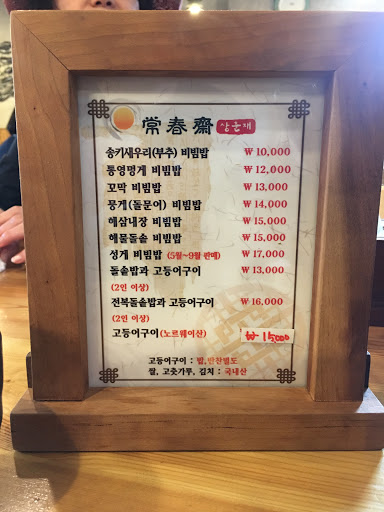 常春齋 상춘재
송키새우리(부추) 비빔밥 ₩ 10,000
통영멍게 비빔밥 ₩ 12,000
꼬막 비빔밥 ₩ 13,000
뭉게(돌문어) 비빔밥 ₩ 14,000
해삼내장 비빔밥 ₩ 15,000
해물돌솥 비빔밥 ₩ 15,000
성게 비빔밥 (5월~9월 판매) ₩ 17,000
돌솥밥과 고등어구이 ₩ 13,000
(2인 이상)
전복돌솥밥과 고등어구이 ₩ 16,000
(2인 이상)
고등어구이(노르웨이산) ₩ 15000
고등어구이 : 밥,반찬별도
쌀, 고춧가루, 김치 : 국내산